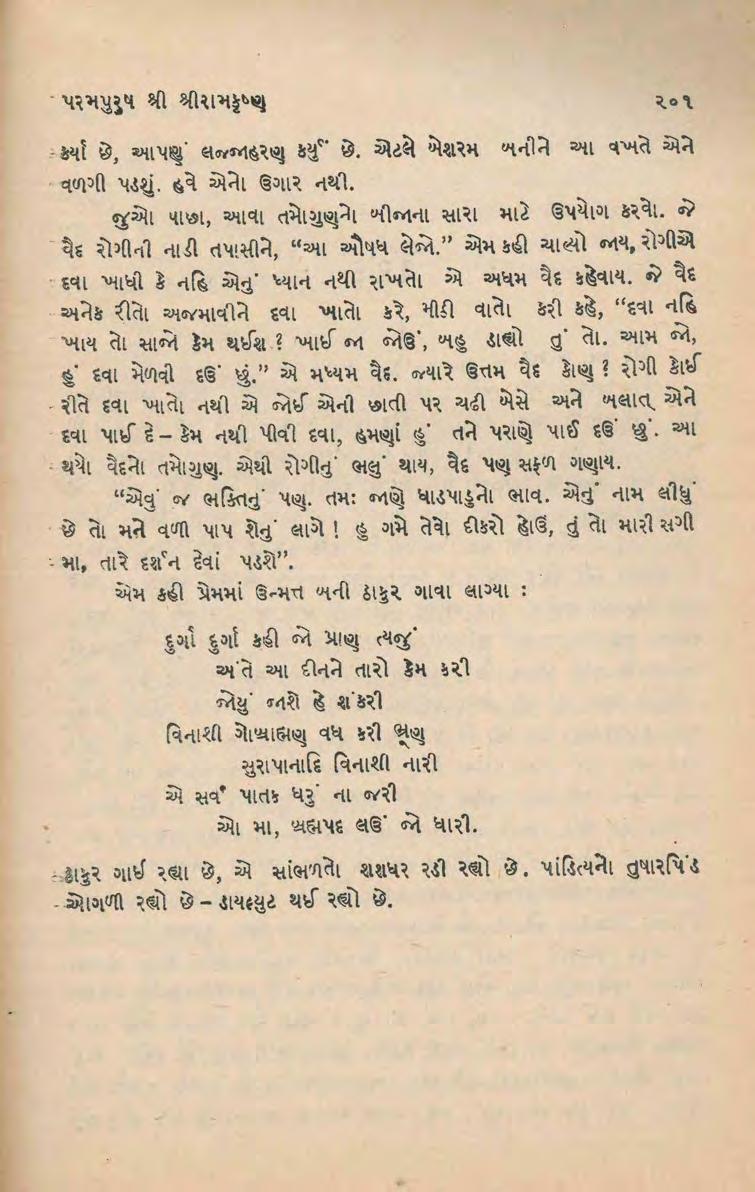 પરમપુરુષ શ્રી શ્રીરામકૃષ્ણ ૨૦૧
કર્યાં છે, આપણું લજ્જાહરણ કર્યું છે. એટલે બેશરમ બનીને આ વખતે એને
વળગી પડશું. હવે એનો ઉગાર નથી.
જુઓ પાછા, આવા તમોગુણનો બીજાના સારા માટે ઉપયોગ કરવો. જે
વૈદ રોગીની નાડી તપાસીને, “આ ઔષધ લેજો.” એમ કહી ચાલ્યો જાય, રોગીએ
દવા ખાધી કે નહિ એનું ધ્યાન નથી રાખતો એ અધમ વૈદ કહેવાય. જે વૈદ
અનેક રીતો અજમાવીને દવા ખાતો કરે, મીઠી વાતો કરી કહે, “દવા નહિ
ખાય તો સાજો કેમ થઈશ ? ખાઈ જા જોઉં, બહુ ડાહ્યો તું તો. આમ જો,
હું દવા મેળવી દઉં છું.” એ મધ્યમ વૈદ. જ્યારે ઉત્તમ વૈદ કોણ ? રોગી કોઈ
રીતે દવા ખાતો નથી એ જોઈ એની છાતી પર ચઢી બેસે અને બલાત્ એને
દવા પાઈ દે – કેમ નથી પીવી દવા, હમણાં હું તને પરાણે પાઈ દઉં છું. આ
થયો વૈદનો તમોગુણ. એથી રોગીનું ભલું થાય, વૈદ પણ સફળ ગણાય.
“એવું જ ભક્તિનું પણ. તમઃ જાણે ધાડપાડુનો ભાવ. એનું નામ લીધું
છે તો મને વળી પાપ શેનું લાગે ! હુ ગમે તેવો દીકરો હોઉં, તું તો મારી સગી
મા, તારે દર્શન દેવાં પડશે”.
એમ કહી પ્રેમમાં ઉન્મત્ત બની ઠાકુર ગાવા લાગ્યા :
દુર્ગા દુર્ગા કહી જો પ્રાણ ત્યજું
અંતે આ દીનને તારો કેમ કરી
જોયું જાશે હે શંકરી
વિનાશી ગોબ્રાહ્મણ વધ કરી ભ્રૂણ
સુરાપાનાદિ વિનાશી નારી
એ સર્વ પાતક ધરું ના જરી
ઓ મા, બ્રહ્મપદ લઉં જો ધારી.
ઠાકુર ગાઈ રહ્યા છે, એ સાંભળતો શશધર રડી રહ્યો છે. પાંડિત્યનો તુષારપિંડ
ઓગળી રહ્યો છે – ડાયલ્યુટ થઈ રહ્યો છે.